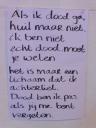 Als ik dood ga,
huil maar niet
ik ben niet
echt dood moet
je weten
het is maar een
lichaam dat ik
achterliet.
Dood ben ik pas
als jij me bent
vergeten.